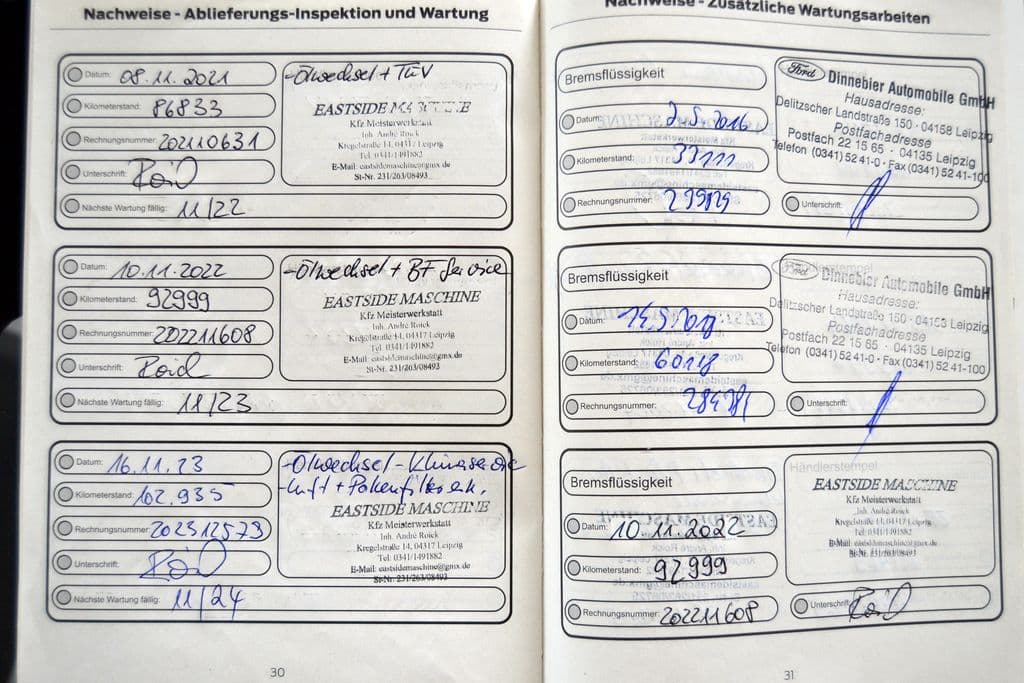 Nachweise - Ablieferungs-Inspektion und Wartung
Datum: 08.11.2021
Kilometerstand: 86833
Rechnungsnummer: 202110631
Unterschrift:
Nächste Wartung fällig: 11/22
-Ölwechsel + TÜV
EASTSIDE
Kfz Meisterwerkstatt
Inh. André Roick
Kregelstraße 14, 04317 Leipzig
Tel. 0341/1491882
E-Mail: eastsidemaschine@gmx.de
St-Nr. 231/263/08493
Datum: 10.11.2022
Kilometerstand: 92999
Rechnungsnummer: 202211608
Unterschrift:
Nächste Wartung fällig: 11/23
-Ölwechsel + BF Service
EASTSIDE MASCHINE
Kfz Meisterwerkstatt
Inh. André Roick
Kregelstraße 14, 04317 Leipzig
Tel. 0341/1491882
E-Mail: eastsidemaschine@gmx.de
St-Nr. 231/263/08493
Datum: 16.11.23
Kilometerstand: 102.935
Rechnungsnummer: 202312573
Unterschrift:
Nächste Wartung fällig: 11/24
-Ölwechsel -Klimaservice
-Luft + Pollenfilter
EASTSIDE MASCHINE
Kfz Meisterwerkstatt
Inh. André Roick
Kregelstraße 14, 04317 Leipzig
Tel. 0341/1491882
E-Mail: eastsidemaschine@gmx.de
St-Nr. 231/263/08493
30
Nachweise - Zusätzliche Wartungsarbeiten
Bremsflüssigkeit
Datum: 2.5.2016
Kilometerstand: 33111
Rechnungsnummer:
Ford Dinnebier Automobile GmbH
Hausadresse:
Delitzscher Landstraße 150 · 04158 Leipzig
Postfachadresse
Postfach 22 15 65 · 04135 Leipzig
Telefon (0341) 52 41-0 · Fax (0341) 52 41-100
Unterschrift:
Bremsflüssigkeit
Datum: 14.5.2018
Kilometerstand: 60118
Rechnungsnummer:
Händlerstempel
Ford Dinnebier Automobile GmbH
Hausadresse:
Delitzscher Landstraße 150 · 04158 Leipzig
Postfachadresse
Postfach 22 15 65 · 04135 Leipzig
Telefon (0341) 52 41-0 · Fax (0341) 52 41-100
Unterschrift:
Bremsflüssigkeit
Datum: 10.11.2022
Kilometerstand: 92999
Rechnungsnummer: 202211608
Händlerstempel
EASTSIDE MASCHINE
Kfz Meisterwerkstatt
Inh. André Roick
Kregelstraße 14, 04317 Leipzig
Tel. 0341/1491882
E-Mail: eastsidemaschine@gmx.de
St-Nr. 231/263/08493
Unterschrift:
31